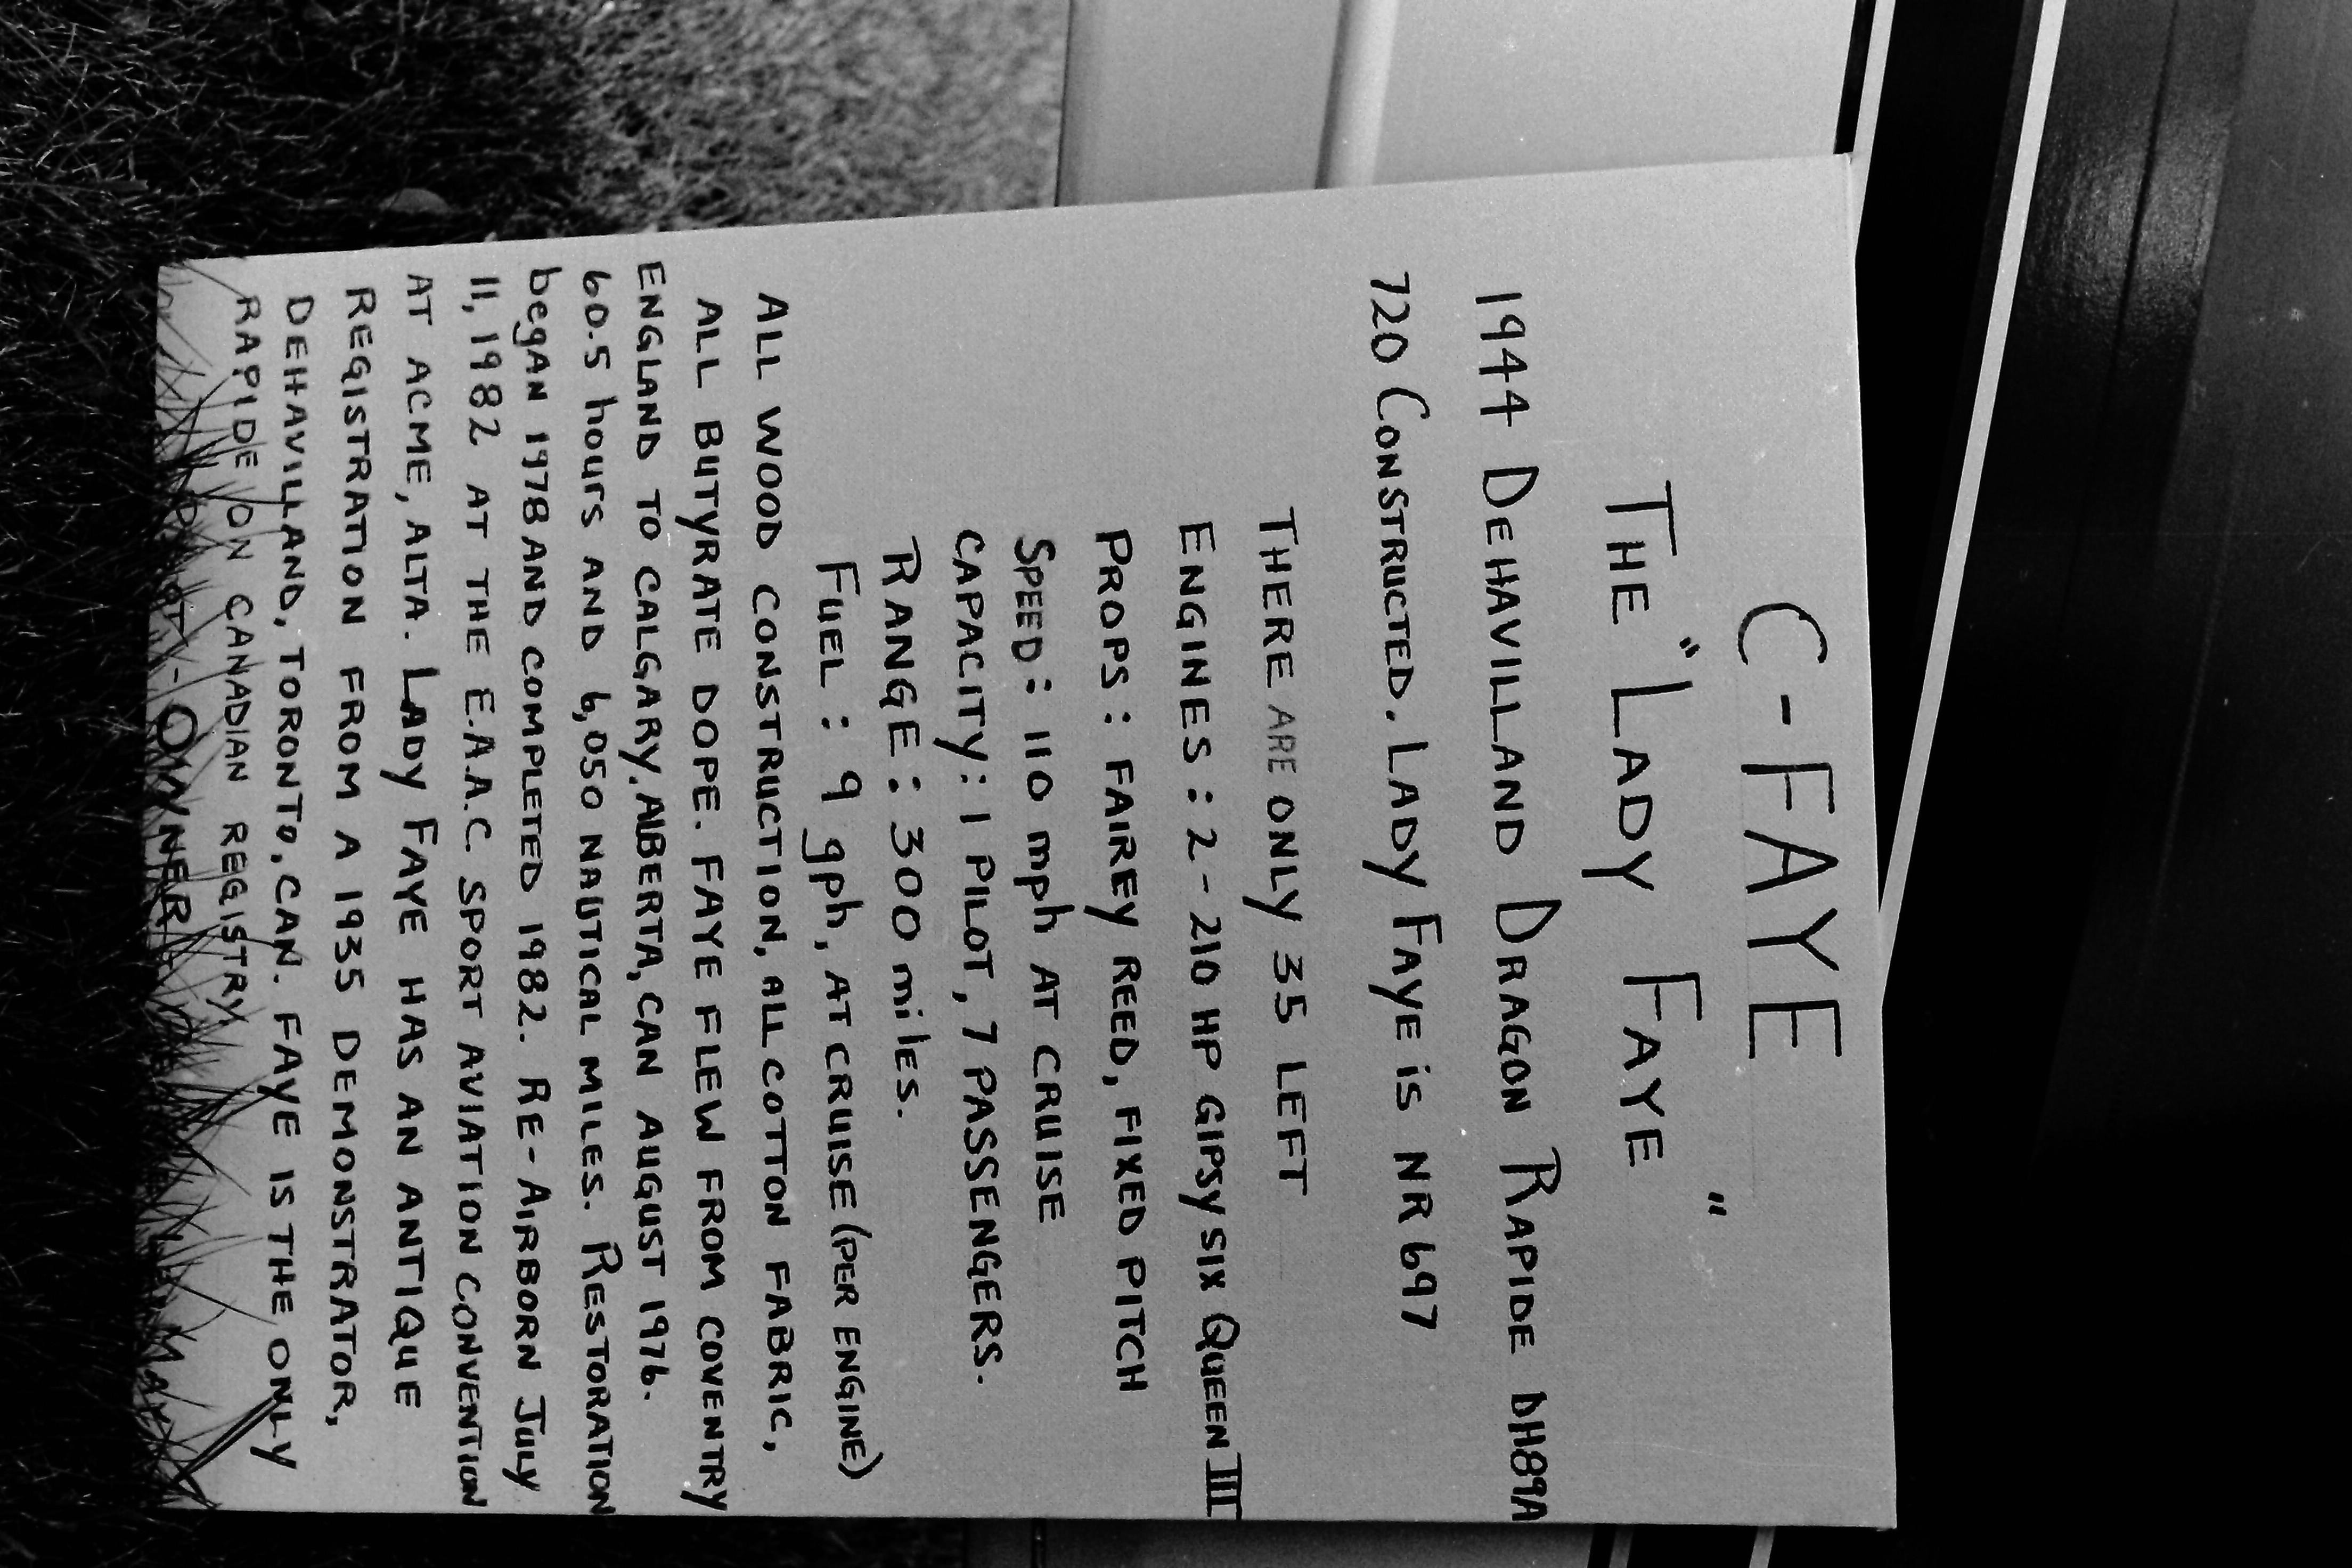 C-FAYE
THE "LADY FAYE"
1944 DEHAVILLAND DRAGON RAPIDE DH89A
720 CONSTRUCTED. LADY FAYE is NR 697
THERE ARE ONLY 35 LEFT
ENGINES: 2-210 HP GIPSY SIX QUEEN III
PROPS: FAIREY REED, FIXED PITCH
SPEED: 110 mph AT CRUISE
CAPACITY: 1 PILOT, 7 PASSENGERS.
RANGE: 300 miles.
FUEL: 9 gph, AT CRUISE (PER ENGINE)
ALL WOOD CONSTRUCTION, ALL COTTON FABRIC,
ALL BUTYRATE DOPE. FAYE FLEW FROM COVENTRY
ENGLAND TO CALGARY, ALBERTA, CAN AUGUST 1976.
60.5 hours AND 6,050 NAUTICAL MILES. RESTORATION
began 1978 AND COMPLETED 1982. RE-AIRBORN JULY
11, 1982 AT THE E.A.A.C. SPORT AVIATION CONVENTION
AT ACME, ALTA. LADY FAYE HAS AN ANTIQUE
REGISTRATION FROM A 1935 DEMONSTRATOR,
DEHAVILLAND, TORONTO, CAN. FAYE IS THE ONLY
RAPIDE ON CANADIAN REGISTRY
- OWNER